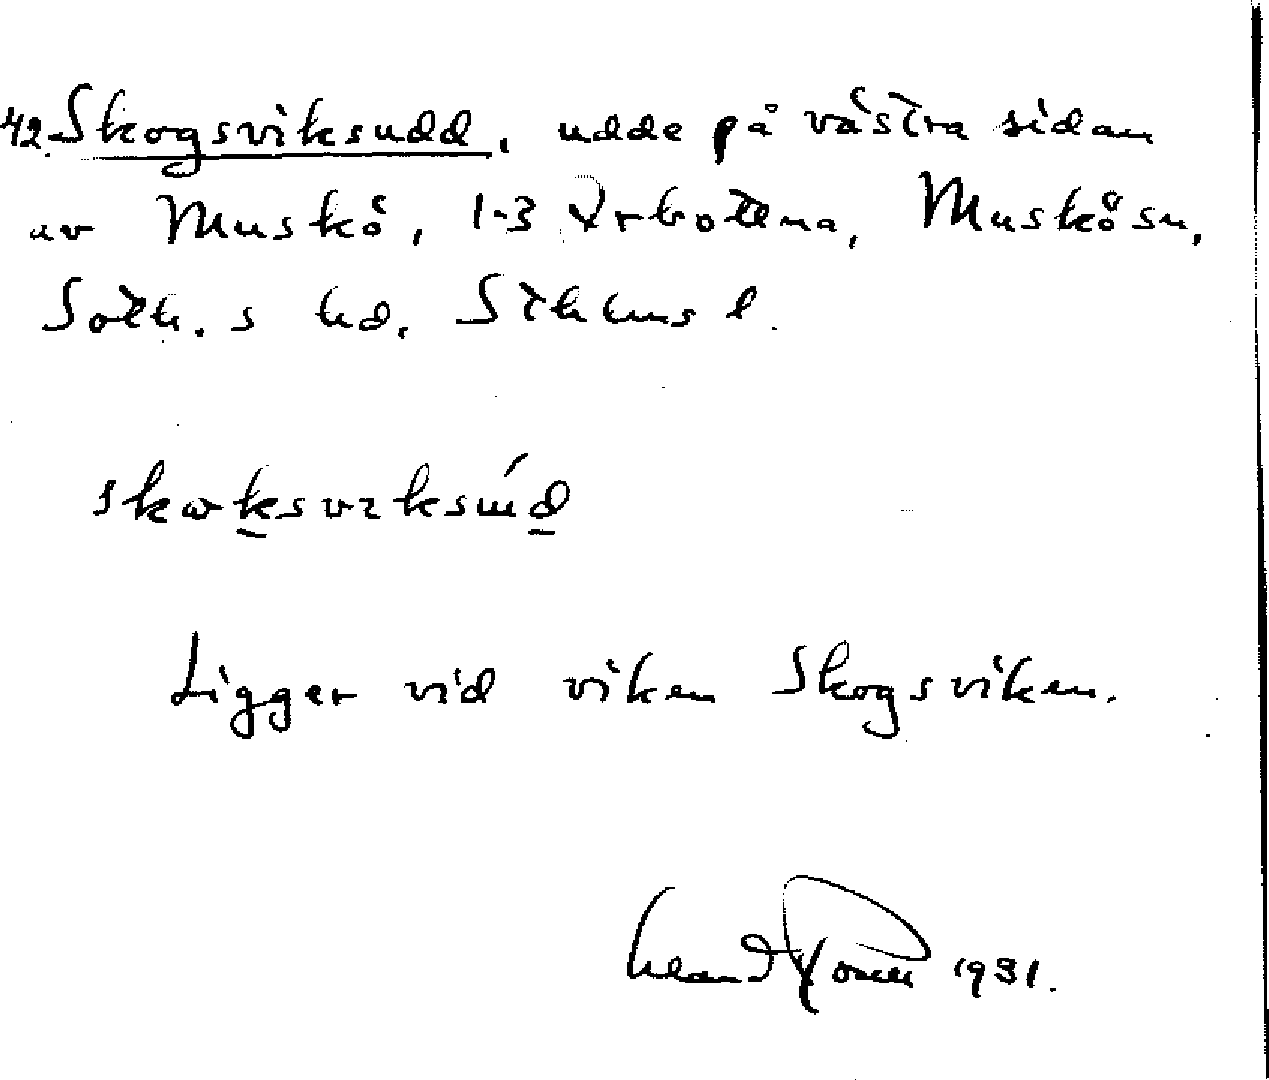 42. Skogsviksudd, udde på västra sidan
av Muskö, 1-3 Yrbottna, Muskö sn,
Soth. s hd. Sthlms l.
skωksvıksɯ́d
Ligger vid viken Skogsviken.
1931.